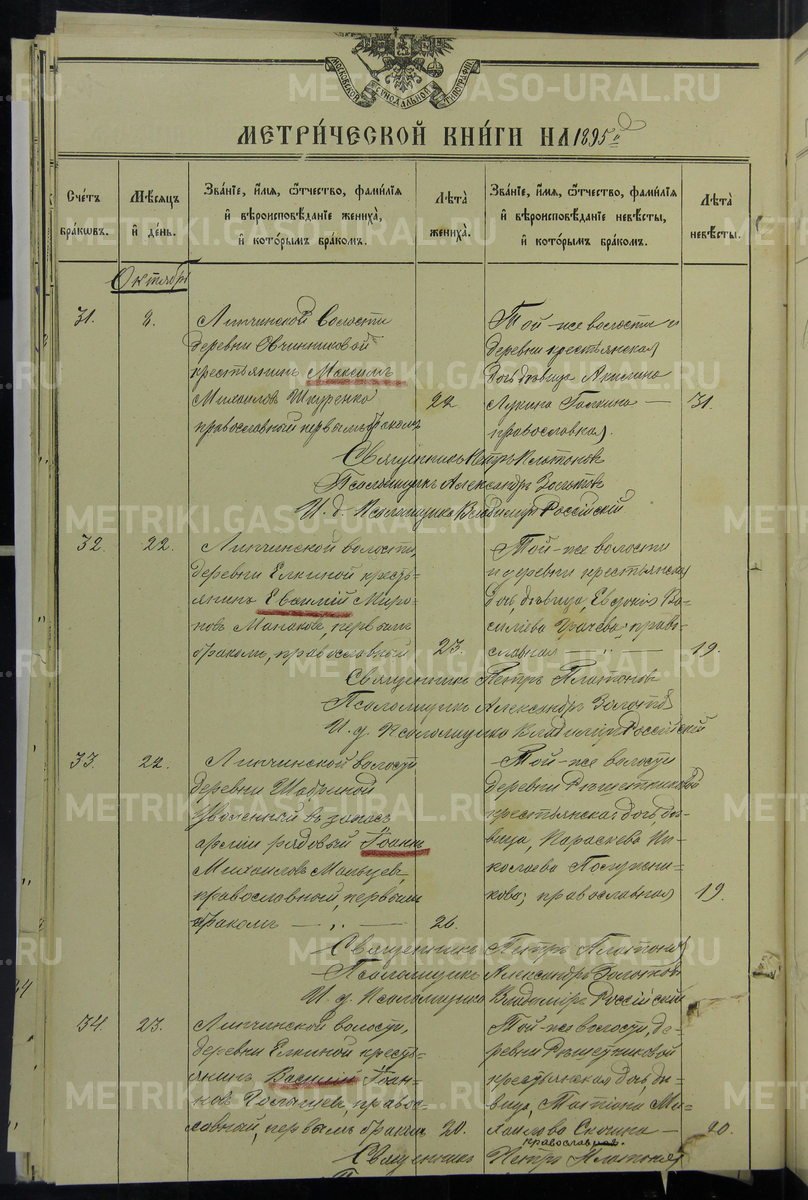 МОСКОВСКОЙ СѴНОДАЛЬНОЙ ТИПОГРАФІИ
МЕТРИ́ЧЕСКОЙ КНИ́ГИ НА 1895 й
Сче́тъ бра́кѡвъ.
Мѣ́сяцъ и҆ де́нь.
Зва́нїе, и҆́мѧ, ѻ҆́тчество, фами́лїѧ
и҆ вѣроисповѣ́данїе жениха̀,
и҆ кото́рымъ бра́комъ.
Лѣта̀ жениха̀.
Зва́нїе, и҆́мѧ, ѻ҆́тчество, фами́лїѧ
и҆ вѣроисповѣ́данїе невѣ́сты,
и҆ кото́рымъ бра́комъ.
Лѣта̀ невѣ́сты.
Октябрь
31. 8.
Липчинской Волости
деревни Овчинниковой
крестьянинъ Максимъ
Михайловъ Шкуренко 22
православный первымъ бракомъ
Той-же волости и
деревни крестьянская
дочь девица Акилина
Лукина Галкина — 31.
православная.
Священникъ Петръ Платоновъ
Псаломщикъ Александръ Золотовъ
И. д. Псаломщика Владиміръ Россійскій
32. 22.
Липчинской волости,
деревни Елкиной кресть-
янинъ Евсимій Миро-
новъ Манаковъ, первымъ
бракомъ, православный 23.
Той-же волости
и деревни крестьянская
дочь девица, Евдокія Ва-
силіева Грачева, право-
славная — 19.
Священникъ Петръ Платоновъ
Псаломщикъ Александръ Золотовъ
И. д. Псаломщика Владиміръ Россійскій
33. 22.
Липчинской волости
деревни Шадриной
Уволенный въ запасъ
арміи рядовый Іоаннъ
Михайловъ Мальцевъ,
православный, первымъ
бракомъ — „ — 26.
Той-же волости
деревни Решетниковой
крестьянская дочь, де-
вица, Параскева Ни-
колаева Полужни-
кова; православная 19.
Священникъ Петръ Платоновъ
Псаломщикъ Александръ Золотовъ
И. д. Псаломщика Владиміръ Россійскій
34. 23.
Липчинской волости,
деревни Елкиной кресть-
янинъ Василій Іоан-
новъ Гольцевъ, право-
славный, первымъ бракомъ 20.
Той-же волости, де-
ревни Решетниковой
крестьянская дочь, де-
вица, Татіана Ми-
хаилова — 20.
православная.
Священникъ Петръ Платоновъ
METRIKI.GASO-URAL.RU